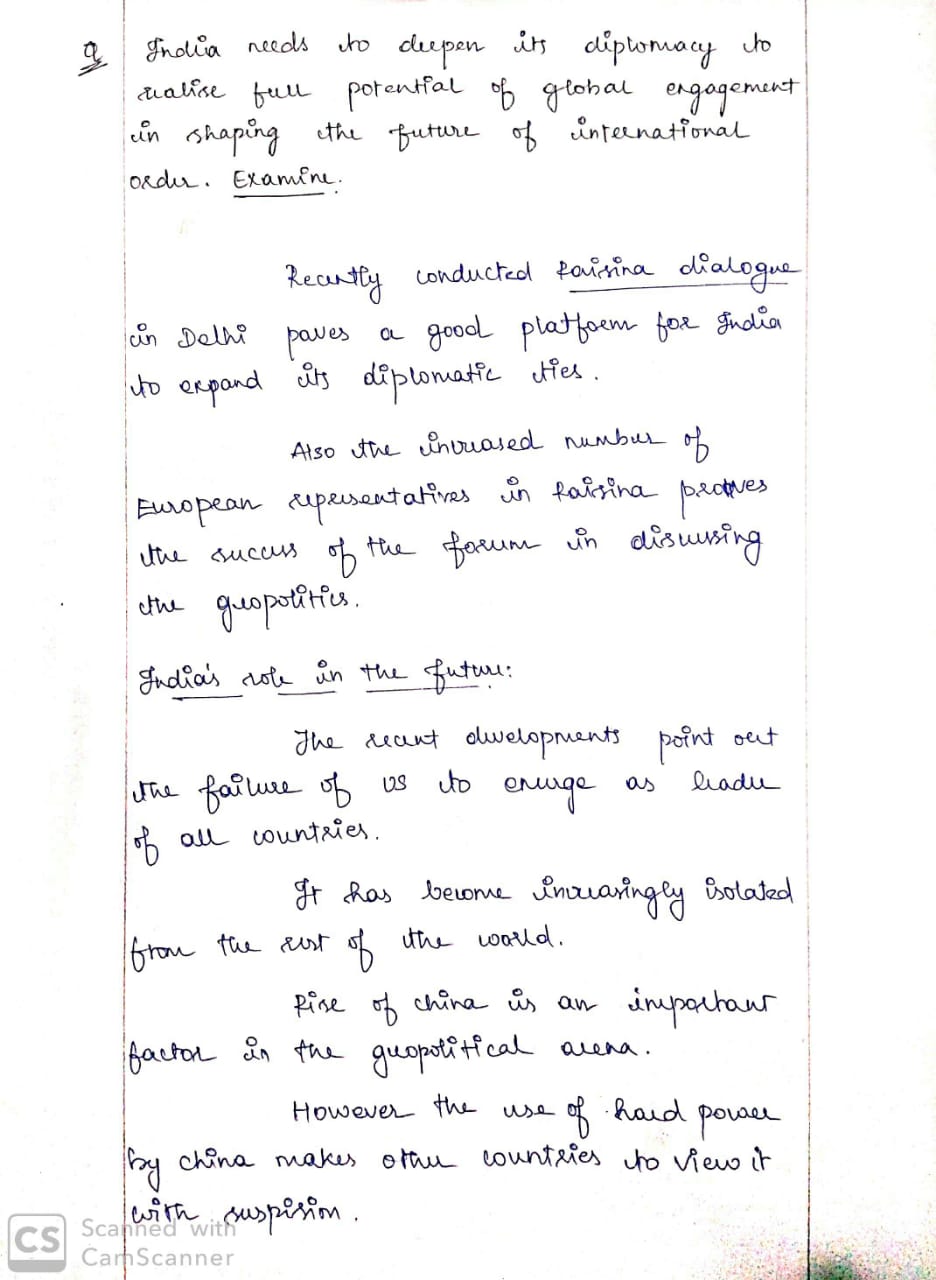 Q India needs to deepen its diplomacy to
realise full potential of global engagement
in shaping the future of international
order. Examine.
Recently conducted Raisina dialogue
in Delhi paves a good platform for India
to expand its diplomatic ties.
Also the increased number of
European representatives in Raisina proves
the success of the forum in discussing
the geopolitics.
India's role in the future:
The recent developments point out
the failure of US to emerge as leader
of all countries.
It has become increasingly isolated
from the rest of the world.
Rise of china is an important
factor in the geopolitical arena.
However the use of hard power
by china makes other countries to view it
with suspision.
CS Scanned with
CamScanner